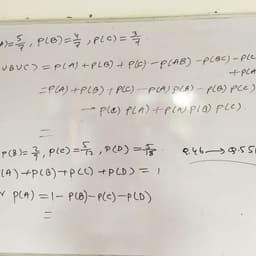 A)=5/7, P(B)=4/7, P(C)=3/7
UBUC) = P(A)+P(B)+P(C)-P(AB)-P(BC)-P(C
+P(A
=P(A)+P(B)+P(C)-P(A)P(B)-P(B)P(C)
-P(C)P(A)+P(A)P(B)P(C).
=
P(B)=3/7, P(C)=5/17, P(D)=5/18
(A)+P(B)+P(C)+P(D)=1
P(A)=1-P(B)-P(C)-P(D)
=